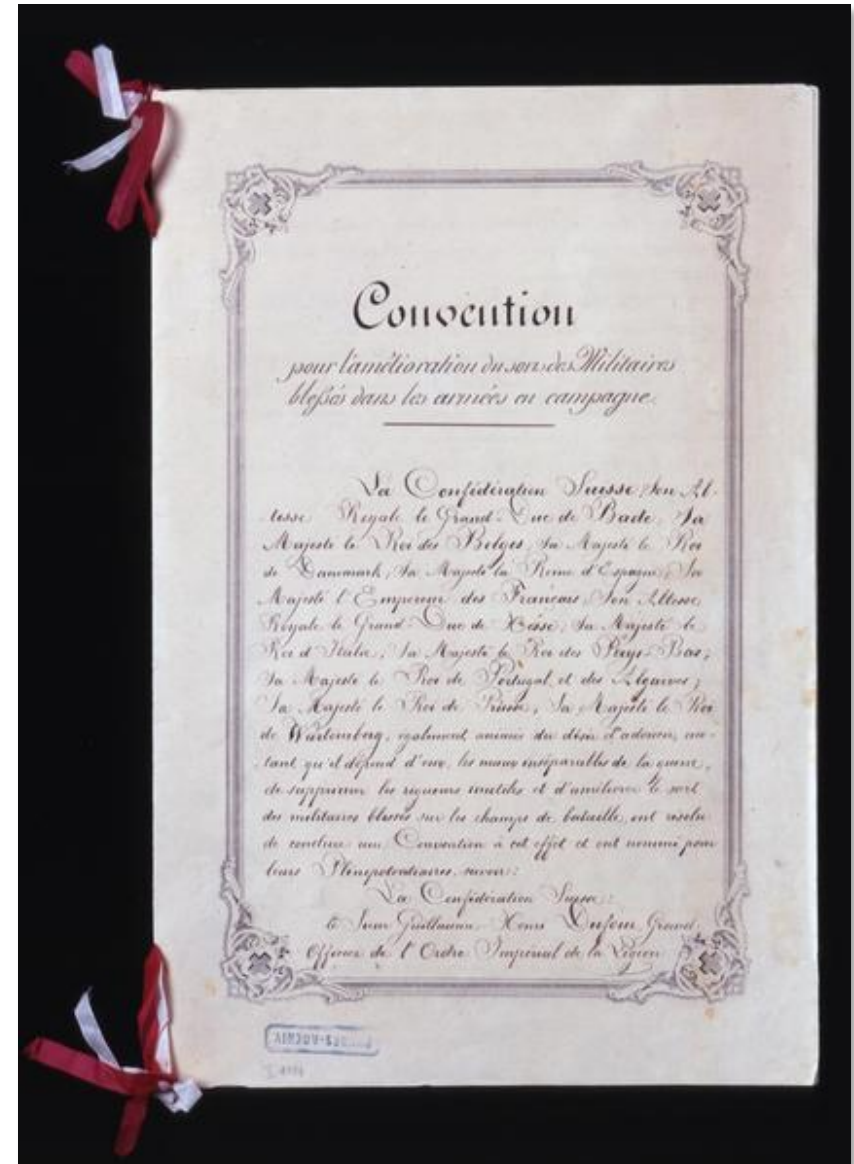 Convention
pour l'amélioration du sort des Militaires
blessés dans les armées en campagne.
La Confédération Suisse; Son Al-
tesse Royale le Grand-Duc de Bade; Sa
Majesté le Roi des Belges; Sa Majesté le Roi
de Danemark; Sa Majesté la Reine d'Espagne; Sa
Majesté l'Empereur des Français; Son Altesse
Royale le Grand-Duc de Hesse; Sa Majesté le
Roi d'Italie; Sa Majesté le Roi des Pays-Bas;
Sa Majesté le Roi de Portugal et des Algarves;
Sa Majesté le Roi de Prusse; Sa Majesté le Roi
de Wurtemberg, également animés du désir d'adoucir, au-
tant qu'il dépend d'eux, les maux inséparables de la guerre,
de supprimer les rigueurs inutiles et d'améliorer le sort
des militaires blessés sur les champs de bataille, ont résolu
de conclure une Convention à cet effet et ont nommé pour
leurs Plénipotentiaires, savoir:
La Confédération Suisse:
le Sieur Guillaume-Henri Dufour, Grand
Officier de l'Ordre Impérial de la Légion
BUNDES-ARCHIV